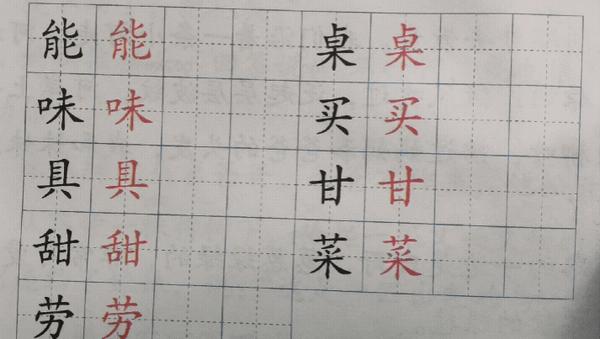 能 能 桌 桌
味 味 买 买
具 具 甘 甘
甜 甜 菜 菜
劳 劳